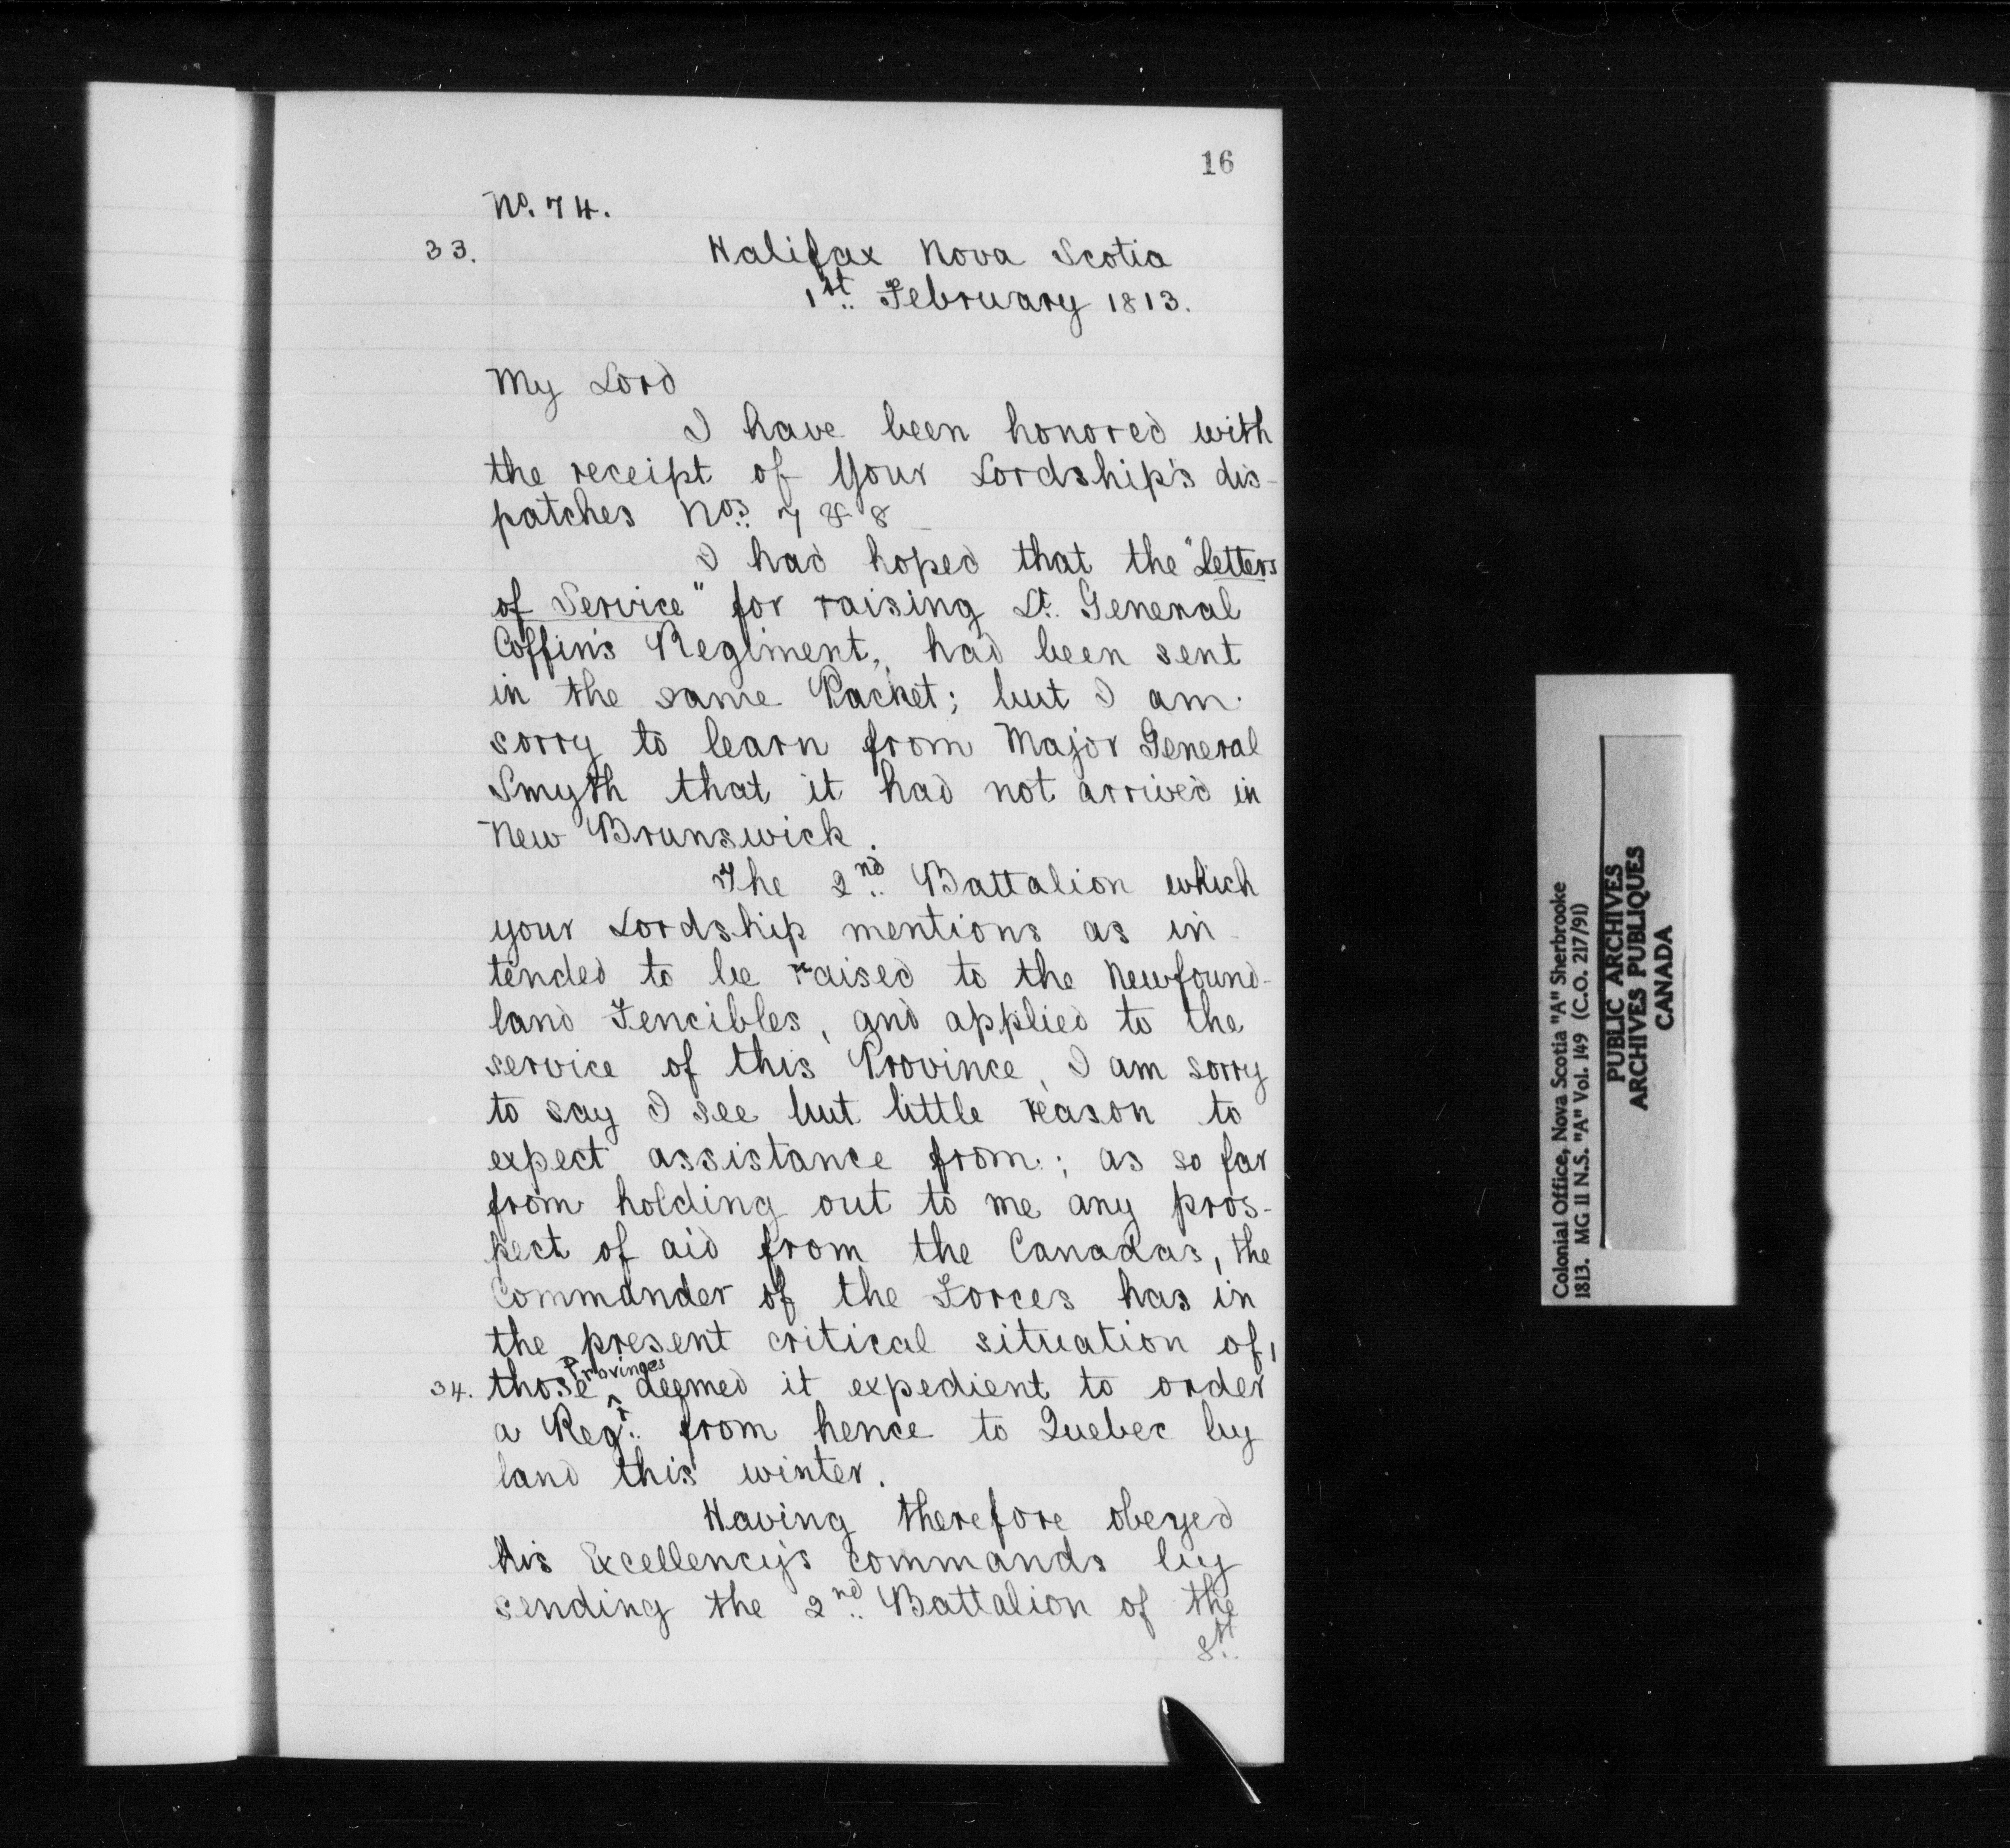 16
No. 74.
33.
Halifax Nova Scotia
1st. February 1813.
My Lord
I have been honored with
the receipt of Your Lordship's dis-
patches Nos. 7 & 8
I had hoped that the "Letters
of Service" for raising Lt. General
Coffin's Regiment, had been sent
in the same Packet; but I am
sorry to learn from Major General
Smyth that it had not arrived in
New Brunswick.
The 2nd. Battalion which
your Lordship mentions as in-
tended to be raised to the Newfound-
land Fencibles, and applied to the
service of this Province, I am sorry
to say I see but little reason to
expect assistance from; as so far
from holding out to me any pros-
pect of aid from the Canadas, the
Commander of the Forces has in
the present critical situation of
34. those ^Provinces deemed it expedient to order
a Regt. from hence to Quebec by
land this winter.
Having therefore obeyed
His Excellency's commands by
sending the 2nd. Battalion of the
8th.
Colonial Office, Nova Scotia "A" Sherbrooke
1813. MG 11 N.S. "A" Vol. 149 (C.O. 217/91)
PUBLIC ARCHIVES
ARCHIVES PUBLIQUES
CANADA